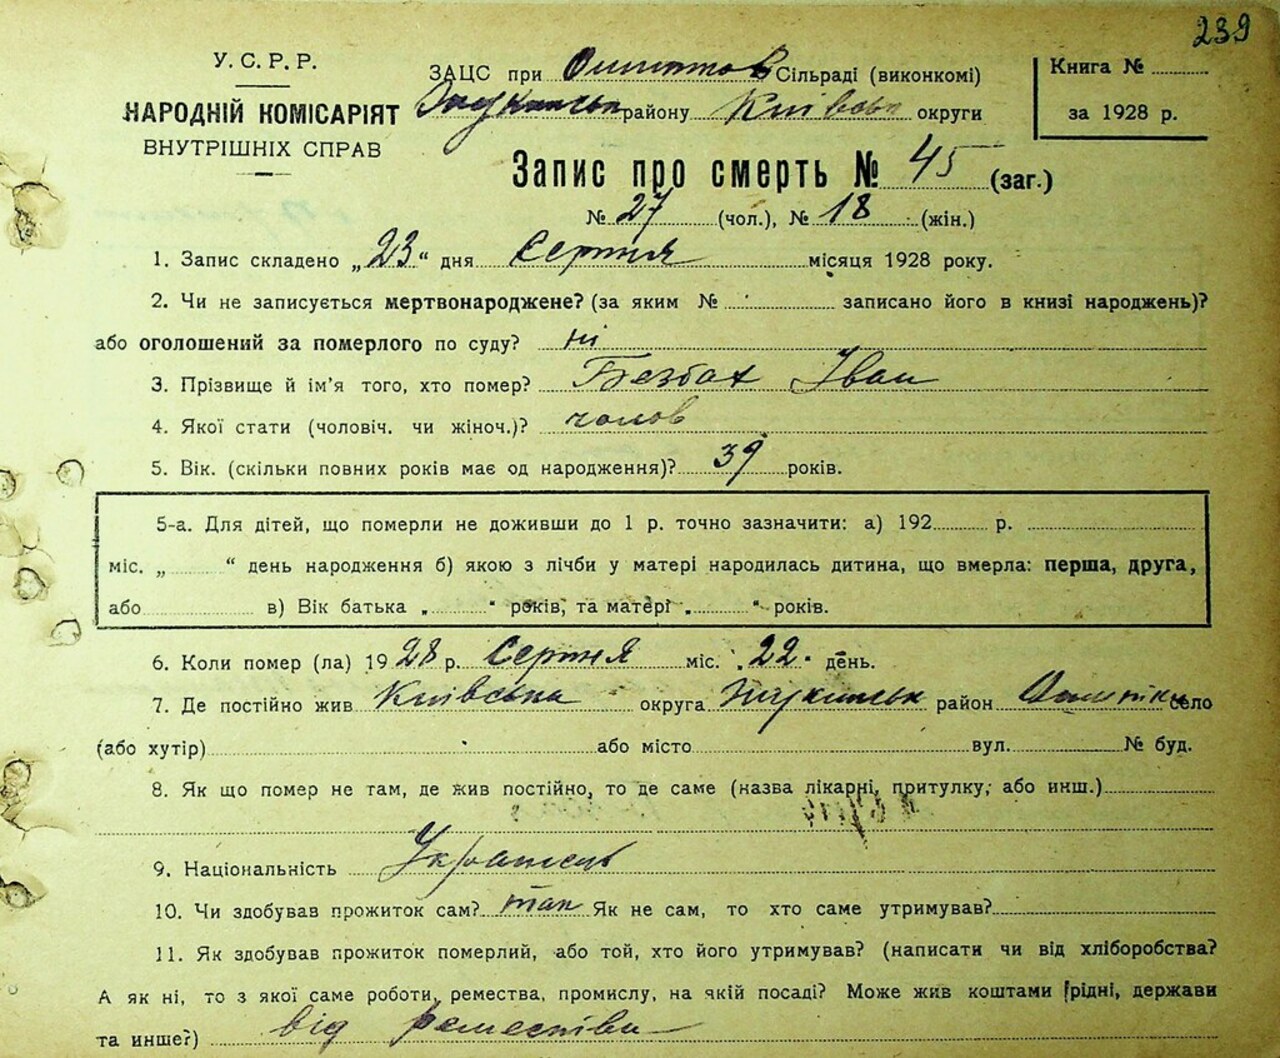 239
У. С. Р. Р.
НАРОДНІЙ КОМІСАРІЯТ
ВНУТРІШНІХ СПРАВ
ЗАЦС при Сільраді (виконкомі)
району Київськ округи
Книга №
за 1928 р.
Запис про смерть № 45 (заг.)
№ 27 (чол.), № 18 (жін.)
1. Запис складено „23“ дня Серпня місяця 1928 року.
2. Чи не записується мертвонароджене? (за яким № записано його в книзі народжень)?
або оголошений за померлого по суду? ні
3. Прізвище й ім’я того, хто помер? Безбах Іван
4. Якої стати (чоловіч. чи жіноч.)? чолов
5. Вік. (скільки повних років має од народження)? 39 років.
5-а. Для дітей, що померли не доживши до 1 р. точно зазначити: а) 192 р.
міс. „ “ день народження б) якою з лічби у матері народилась дитина, що вмерла: перша, друга,
або в) Вік батька „ “ років, та матері „ “ років.
6. Коли помер (ла) 1928 р. Серпня міс. 22 день.
7. Де постійно жив Київська округа район село
(або хутір) або місто вул. № буд.
8. Як що помер не там, де жив постійно, то де саме (назва лікарні, притулку, або инш.)
9. Національність Українець
10. Чи здобував прожиток сам? так Як не сам, то хто саме утримував?
11. Як здобував прожиток померлий, або той, хто його утримував? (написати чи від хліборобства?
А як ні, то з якої саме роботи, ремества, промислу, на якій посаді? Може жив коштами рідні, держави
та инше?) від ремества